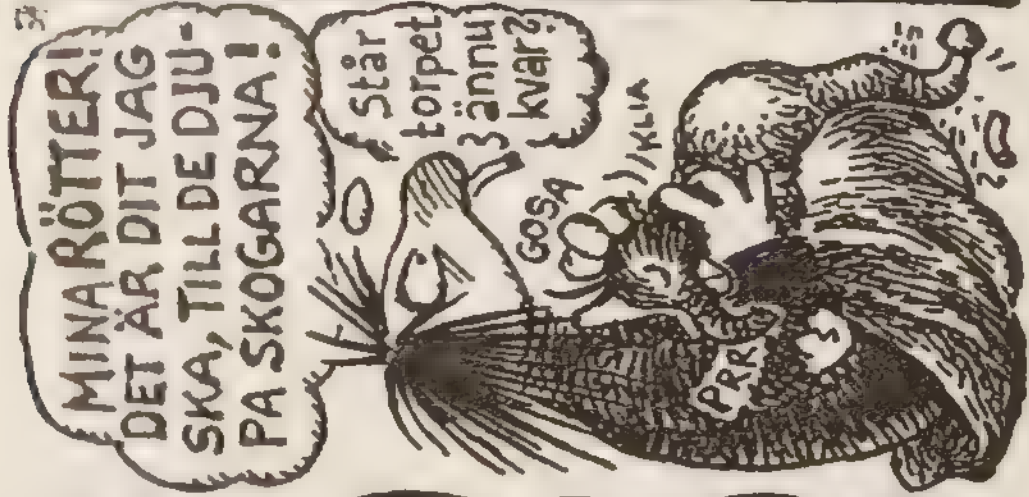 MINA RÖTTER!
DET ÄR DIT JAG
SKA, TILL DE DJU-
PA SKOGARNA!
står
torpet
ännu
kvar?
GOSA
KLIA
PRR